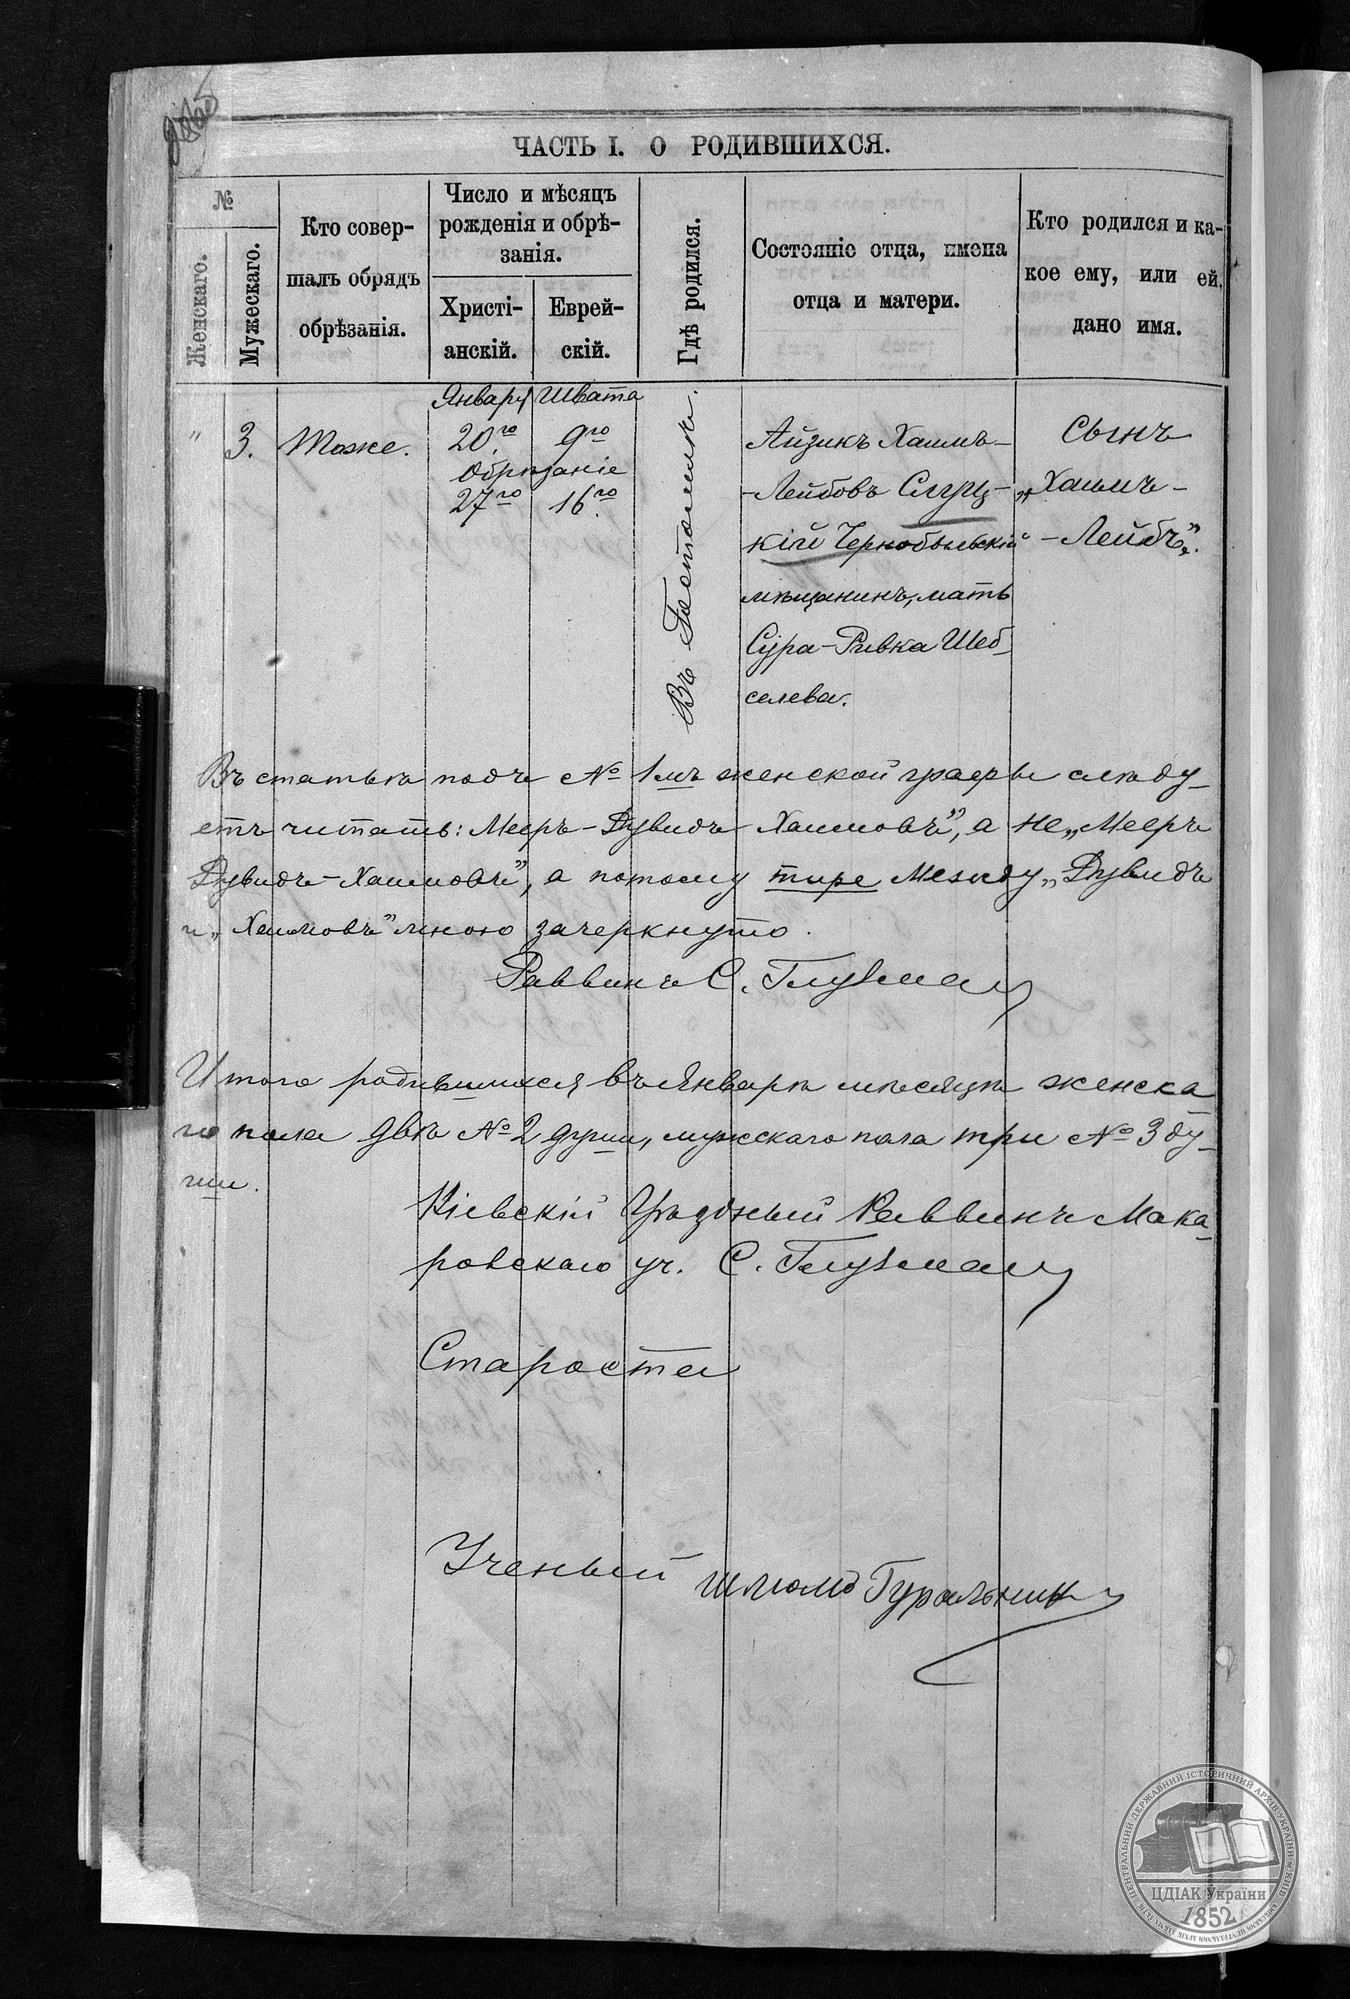 ЧАСТЬ I. О РОДИВШИХСЯ.
№
Женскаго.
Мужескаго.
Кто совер-
шалъ обрядъ
обрѣзанія.
Число и мѣсяцъ
рожденія и обрѣ-
занія.
Христі-
анскій.
Еврей-
скій.
Гдѣ родился.
Состояніе отца, имена
отца и матери.
Кто родился и ка-
кое ему, или ей,
дано имя.
Январ Швата
" 3. Тоже. 20.го 9го
Обрѣзаніе
27го 16.го
Въ Гостомлѣ.
Айзикъ Хаимъ-
-Лейбовъ Слуц-
кій Чернобыльскій
мѣщанинъ, мать
Сура-Ривка Шеб-
селева.
Сынъ
„Хаимъ-
-Лейбъ".
Въ статьѣ подъ № 1мъ женской графы слѣду-
етъ читать: Мееръ-Дувидъ Хаимовъ", а не „Мееръ
Дувидъ-Хаимовъ", а потому тире между „Дувидъ
и „Хаимовъ" мною зачеркнуто.
Раввинъ С. Глузман
Итого родившихся въ Январѣ мѣсяцѣ женска
го пола двѣ № 2 души, мужскаго пола три № 3 ду-
ши.
Кіевскій Уѣздный Раввинъ Мака-
ровскаго уч. С. Глузман
Староста
Ученый Шлиомо Гуральник
ЦЕНТРАЛЬНИЙ ДЕРЖАВНИЙ ІСТОРИЧНИЙ АРХІВ УКРАЇНИ м.КИЇВ
ЦДІАК України
1852